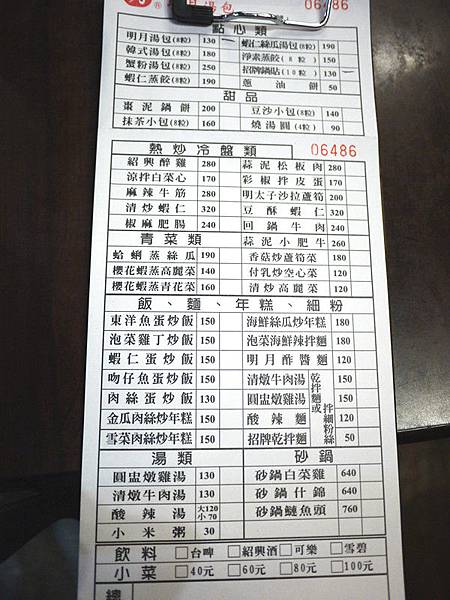 ® 月湯包 06486
點心類
明月湯包(8粒) 130 蝦仁絲瓜湯包(8粒) 190
韓式湯包(8粒) 180 淨素蒸餃(8粒) 150
蟹粉湯包(8粒) 250 招牌鍋貼(10粒) 130
蝦仁蒸餃(8粒) 190 蔥油餅 50
甜品
棗泥鍋餅 200 豆沙小包(8粒) 140
抹茶小包(8粒) 160 燒湯圓(4粒) 90
熱炒冷盤類 06486
紹興醉雞 280 蒜泥松板肉 280
涼拌白菜心 170 彩椒拌皮蛋 170
麻辣牛筋 280 明太子沙拉蘆筍 200
清炒蝦仁 320 豆酥蝦仁 320
椒麻肥腸 240 回鍋牛肉 240
青菜類 蒜泥小肥牛 260
蛤蜊蒸絲瓜 190 香菇炒蘆筍菜 180
櫻花蝦蒸高麗菜 140 付乳炒空心菜 120
櫻花蝦蒸青花菜 160 清炒高麗菜 120
飯、麵、年糕、細粉
東洋魚蛋炒飯 150 海鮮絲瓜炒年糕 180
泡菜雞丁炒飯 150 泡菜海鮮辣拌麵 180
蝦仁蛋炒飯 150 明月酢醬麵 120
吻仔魚蛋炒飯 150 清燉牛肉湯 乾拌麵或拌細粉絲 150
肉絲蛋炒飯 130 圓盅燉雞湯 150
金瓜肉絲炒年糕 150 酸辣麵 120
雪菜肉絲炒年糕 150 招牌乾拌麵 50
湯類 砂鍋
圓盅燉雞湯 130 砂鍋白菜雞 640
清燉牛肉湯 130 砂鍋什錦 640
酸辣湯 大120 小70 砂鍋鰱魚頭 760
小米粥 30
飲料 □台啤 □紹興酒 □可樂 □雪碧
小菜 □40元 □60元 □80元 □100元
總